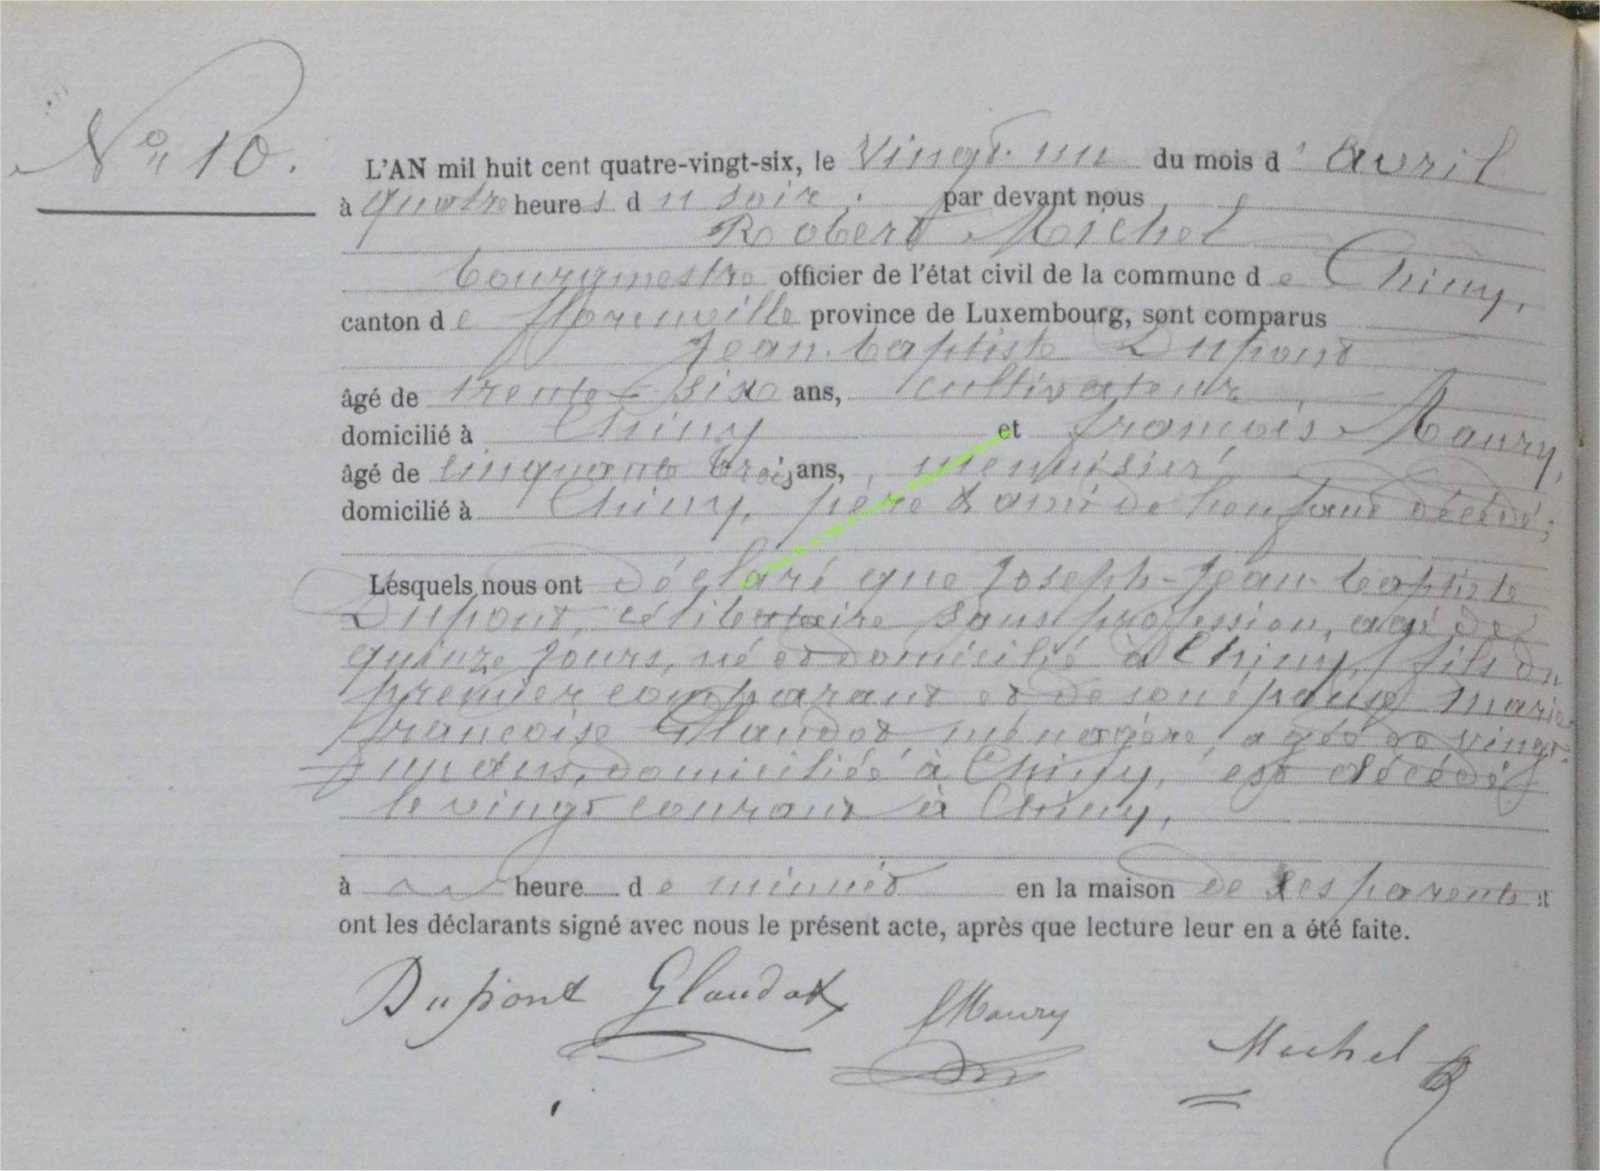 N° 10.
L'AN mil huit cent quatre-vingt-six, le vingt-un du mois d'avril
à quatre heures du soir. par devant nous
Robert Michel
bourgmestre officier de l'état civil de la commune de Chiny,
canton de florenville province de Luxembourg, sont comparus
Jean-baptiste Dupont
âgé de trente-six ans, cultivateur,
domicilié à Chiny et françois Maury,
âgé de cinquante trois ans, menuisier
domicilié à Chiny, père & ami de l'enfant décédé;
Lesquels nous ont déclaré que Joseph-Jean-baptiste
Dupont, célibataire sans profession, agé de
quinze jours, né et domicilié à Chiny, fils du
premier comparant et de son épouse marie
françoise Glaudot ménagère, agée de vingt-
un ans, domiciliée à Chiny, est décédé
le vingt courant à Chiny,
à heure de minuit en la maison de ses parents et
ont les déclarants signé avec nous le présent acte, après que lecture leur en a été faite.
Dupont Glaudot fMaury Michel R